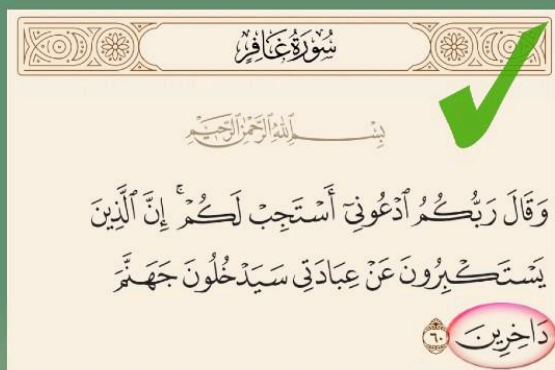 سُورَةُ غَافِرٍ
بِسْمِ ٱللَّهِ ٱلرَّحْمَٰنِ ٱلرَّحِيمِ
وَقَالَ رَبُّكُمُ ٱدْعُونِىٓ أَسْتَجِبْ لَكُمْ ۚ إِنَّ ٱلَّذِينَ
يَسْتَكْبِرُونَ عَنْ عِبَادَتِى سَيَدْخُلُونَ جَهَنَّمَ
دَاخِرِينَ ٦٠